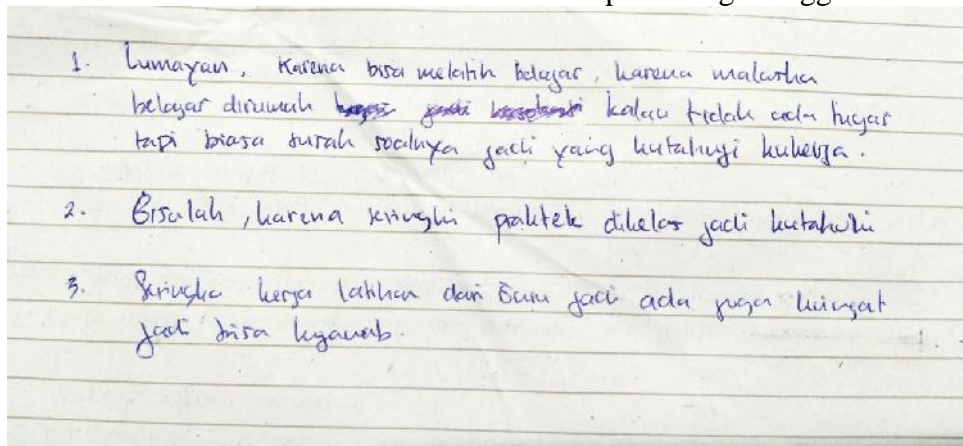 1. Lumayan, Karena bisa melatih belajar, karena malaska
belajar dirumah kalau tidak ada tugas
tapi biasa susah soalnya jadi yang kutahuji kukerja.
2. Bisalah, karena seringki praktek dikelas jadi kutahuki
3. Seringka kerja latihan dari Guru jadi ada juga kuingat
jadi bisa kujawab.